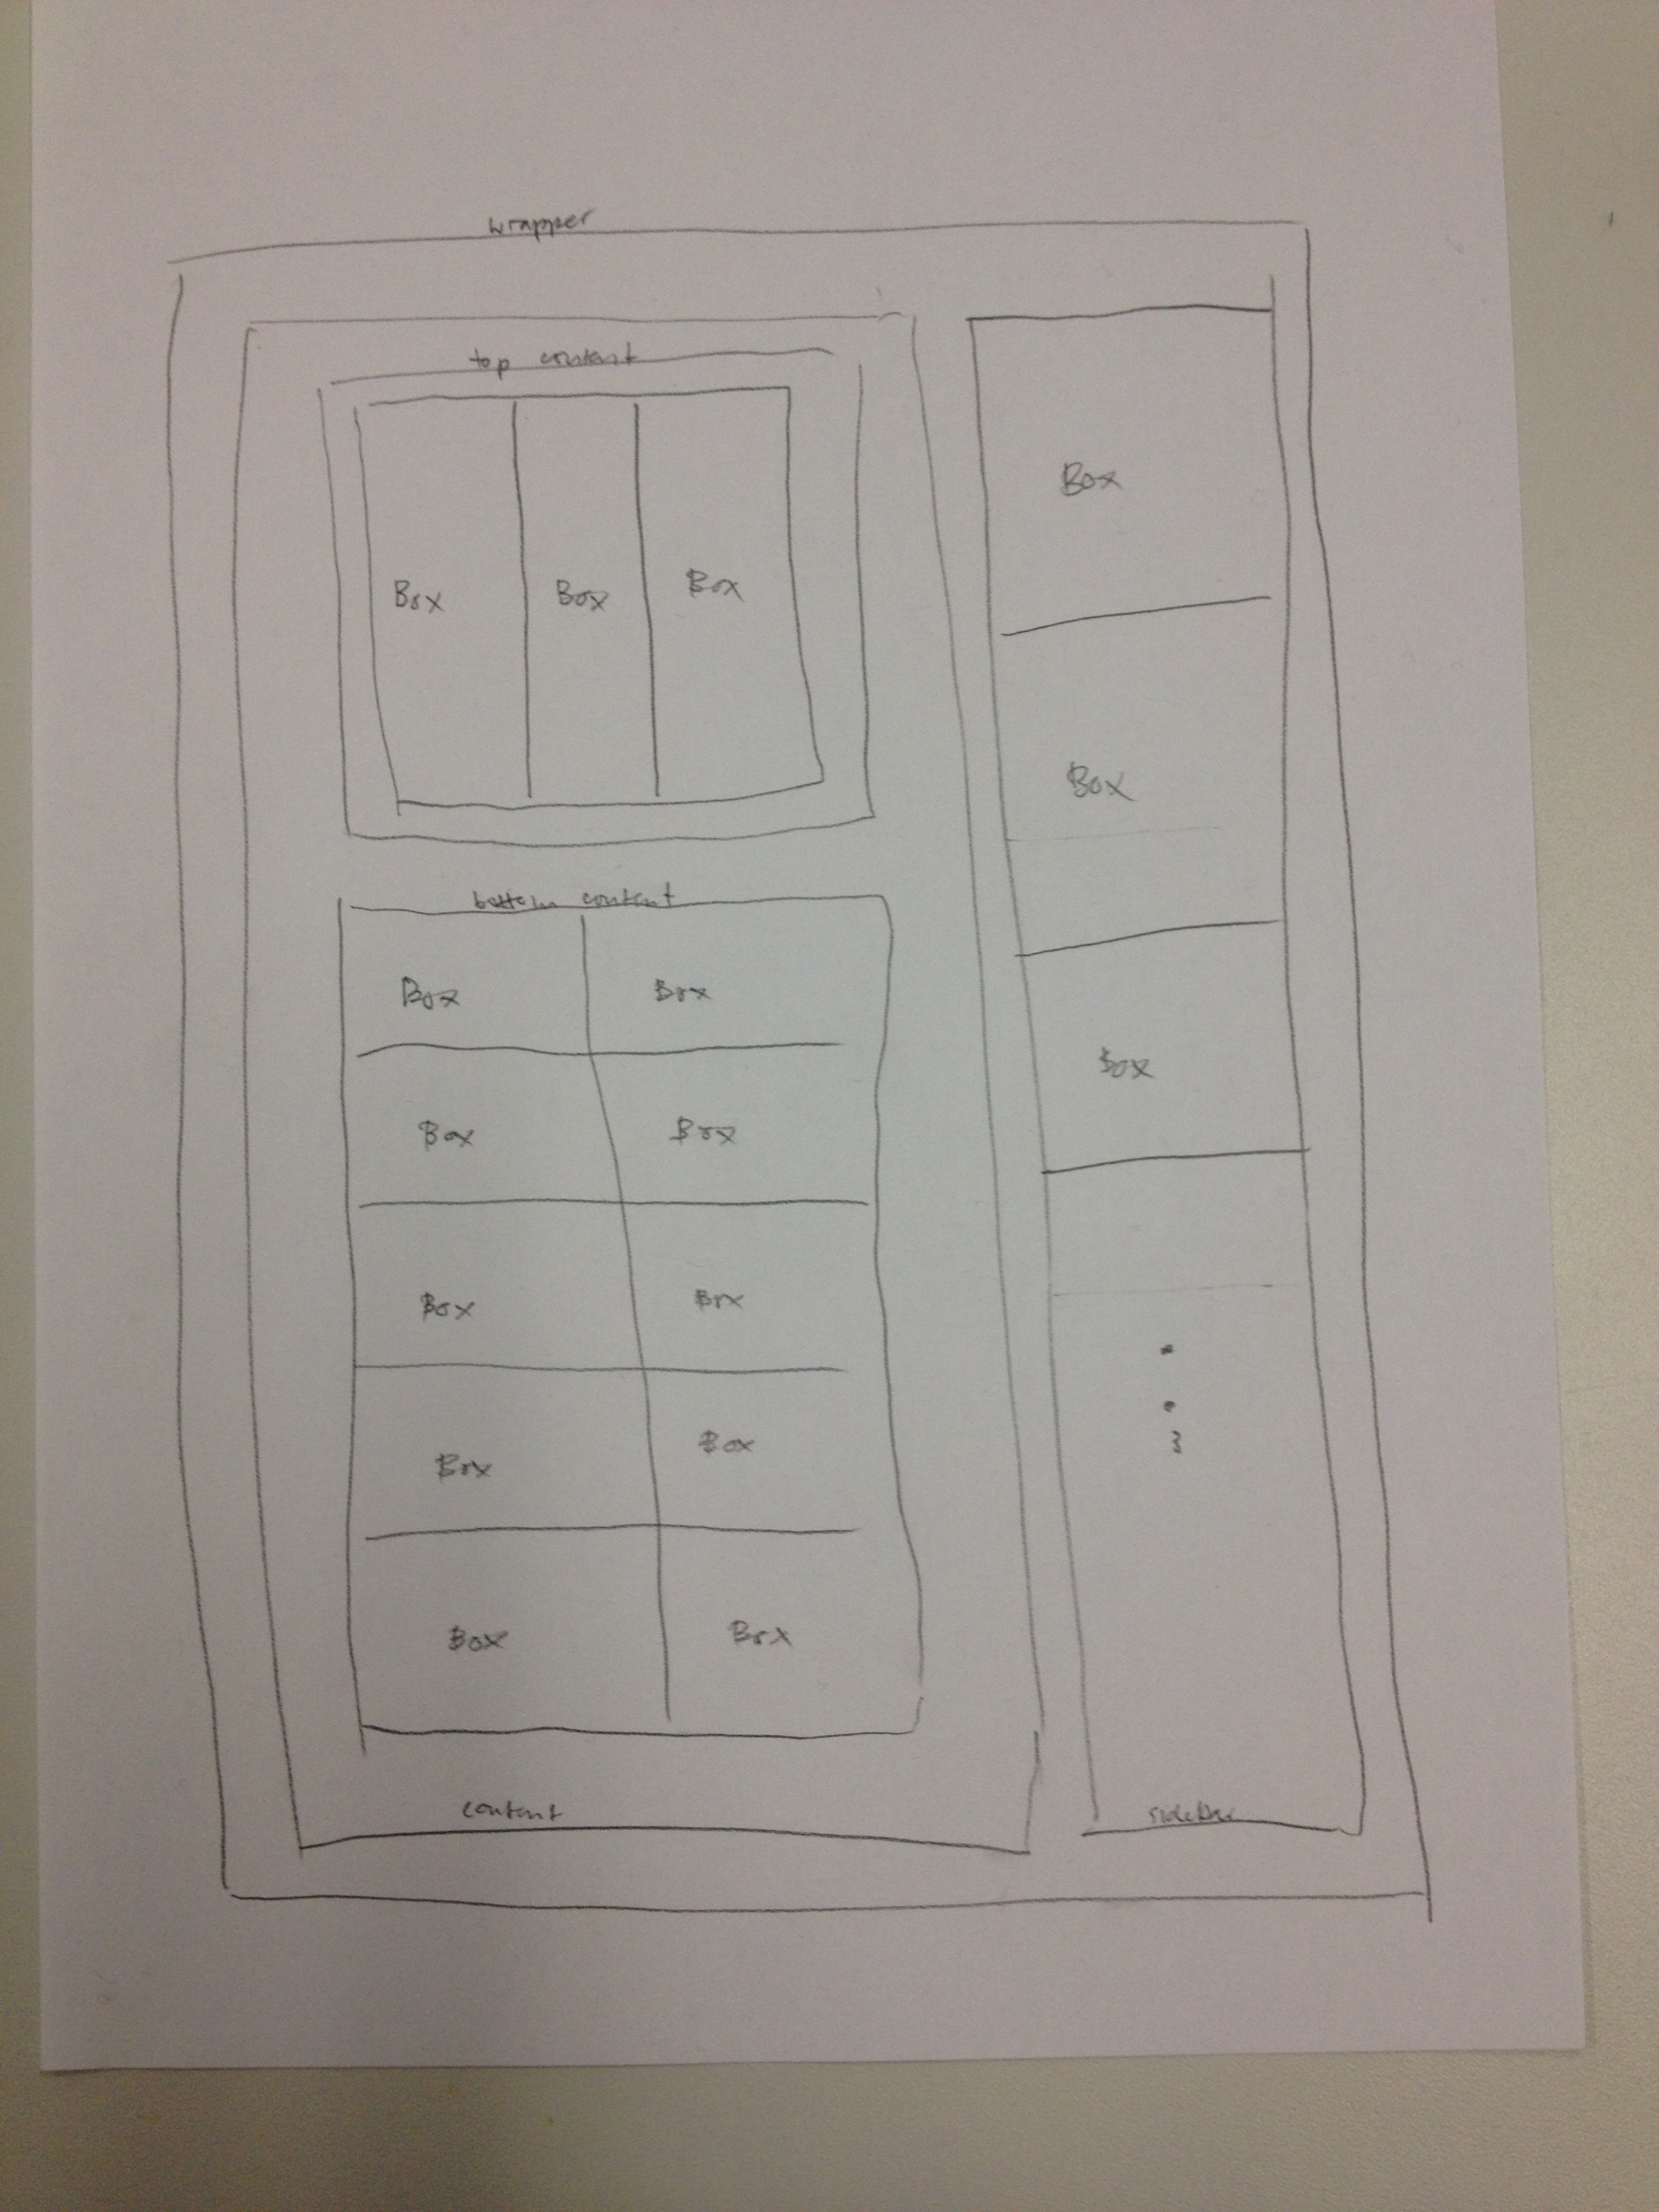 wrapper
top content
Box Box Box
bottom content
Box Box
Box Box
Box Box
Box Box
Box Box
content
Box
Box
Box
sidebar